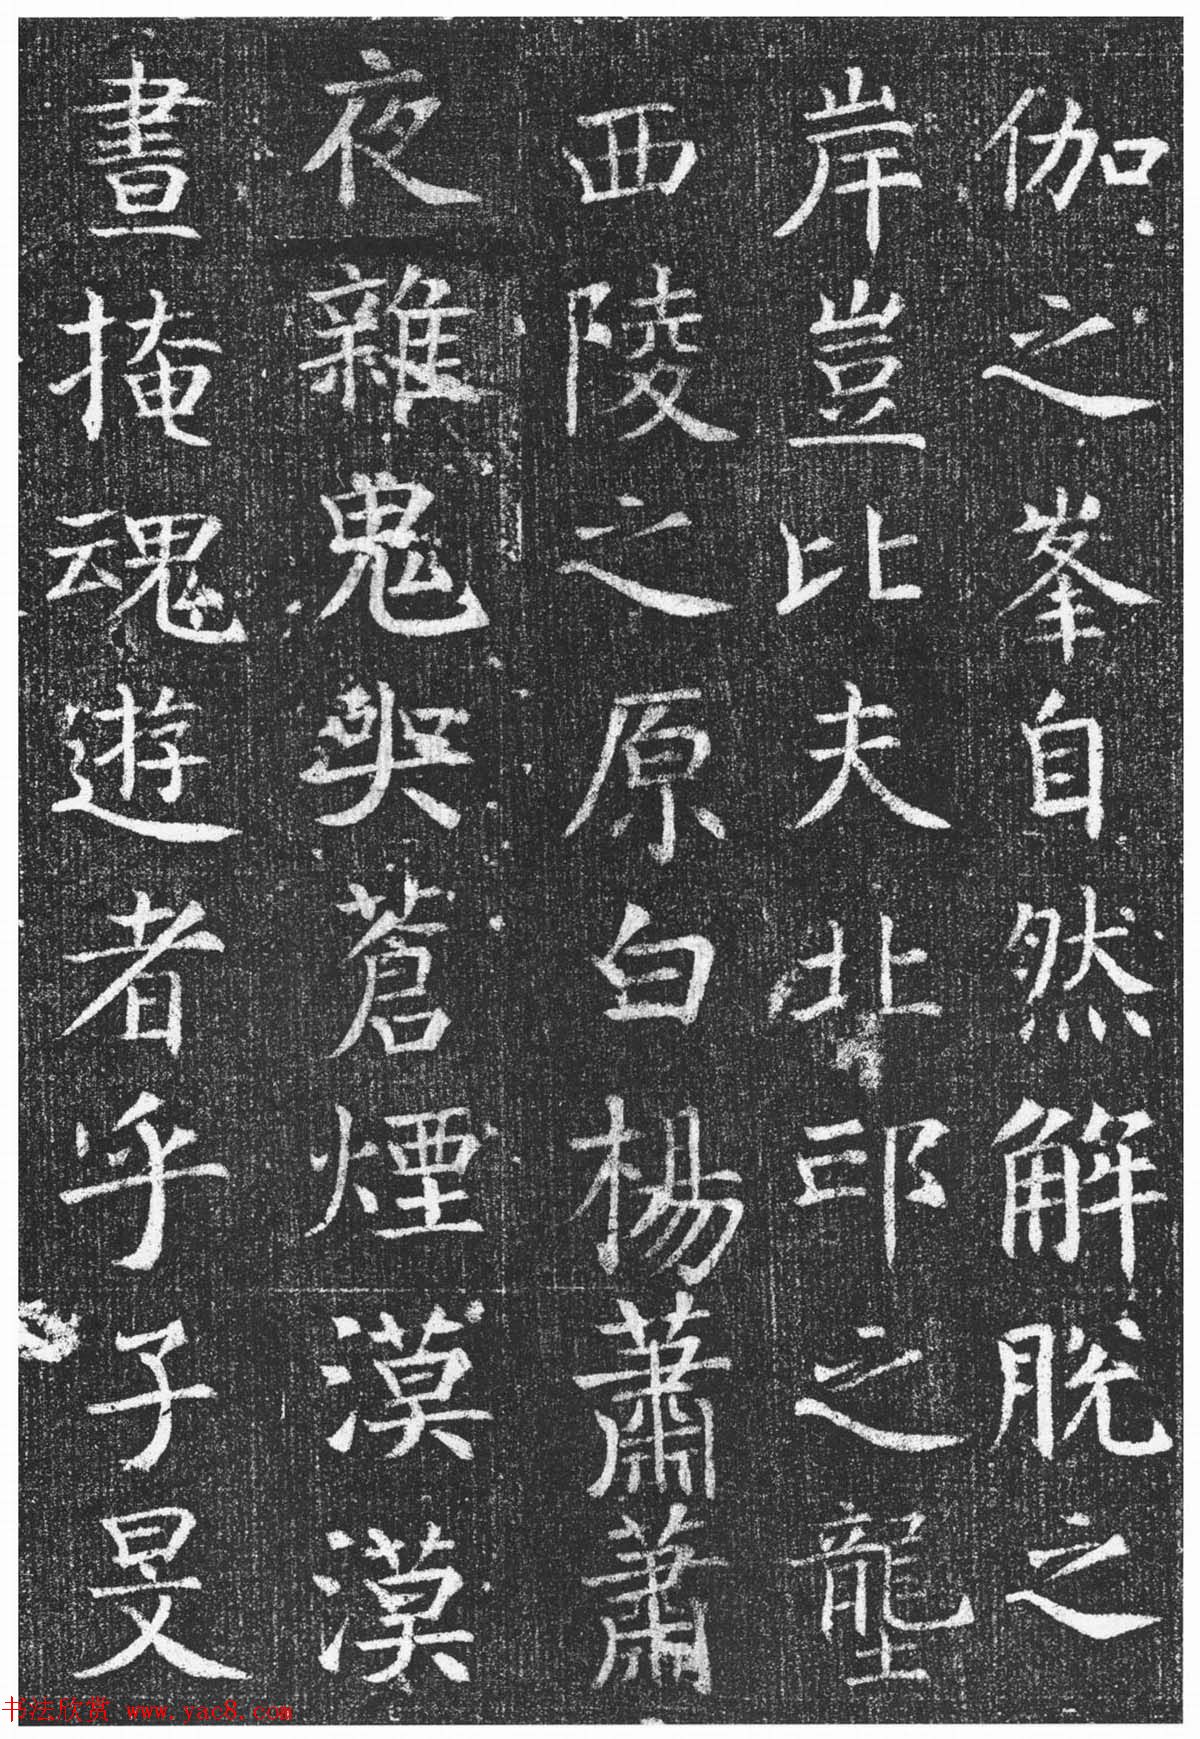 伽之峯自然解脱之
岸豈比夫北邙之壟
西陵之原白楊蕭蕭
夜雜鬼哭蒼煙漠漠
晝掩魂遊者乎子旻
书法欣赏 www.yac8.com